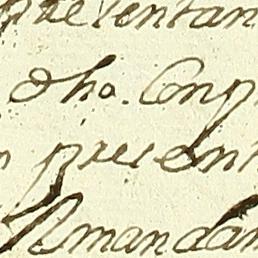 presentan
dho. Conp
present
Amandam